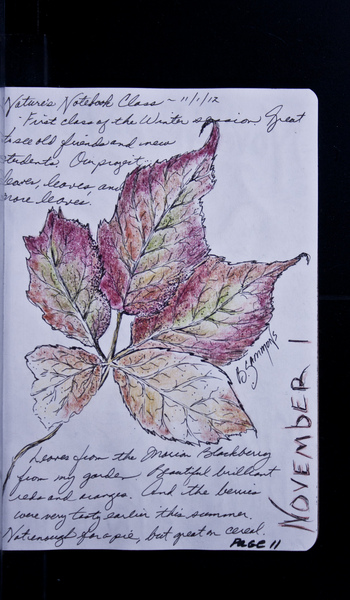 Nature's Notebook Class - 11/1/12
First class of the Winter session. Great
to see old friends and new
students. Our project...
leaves, leaves, and
more leaves.
B Sammons
NOVEMBER 1
Leaves from the Marion Blackberry
from my garden. Beautiful brilliant
reds and oranges. And the berries
were very tasty earlier this summer.
Not enough for a pie, but great on cereal.
PAGE 11